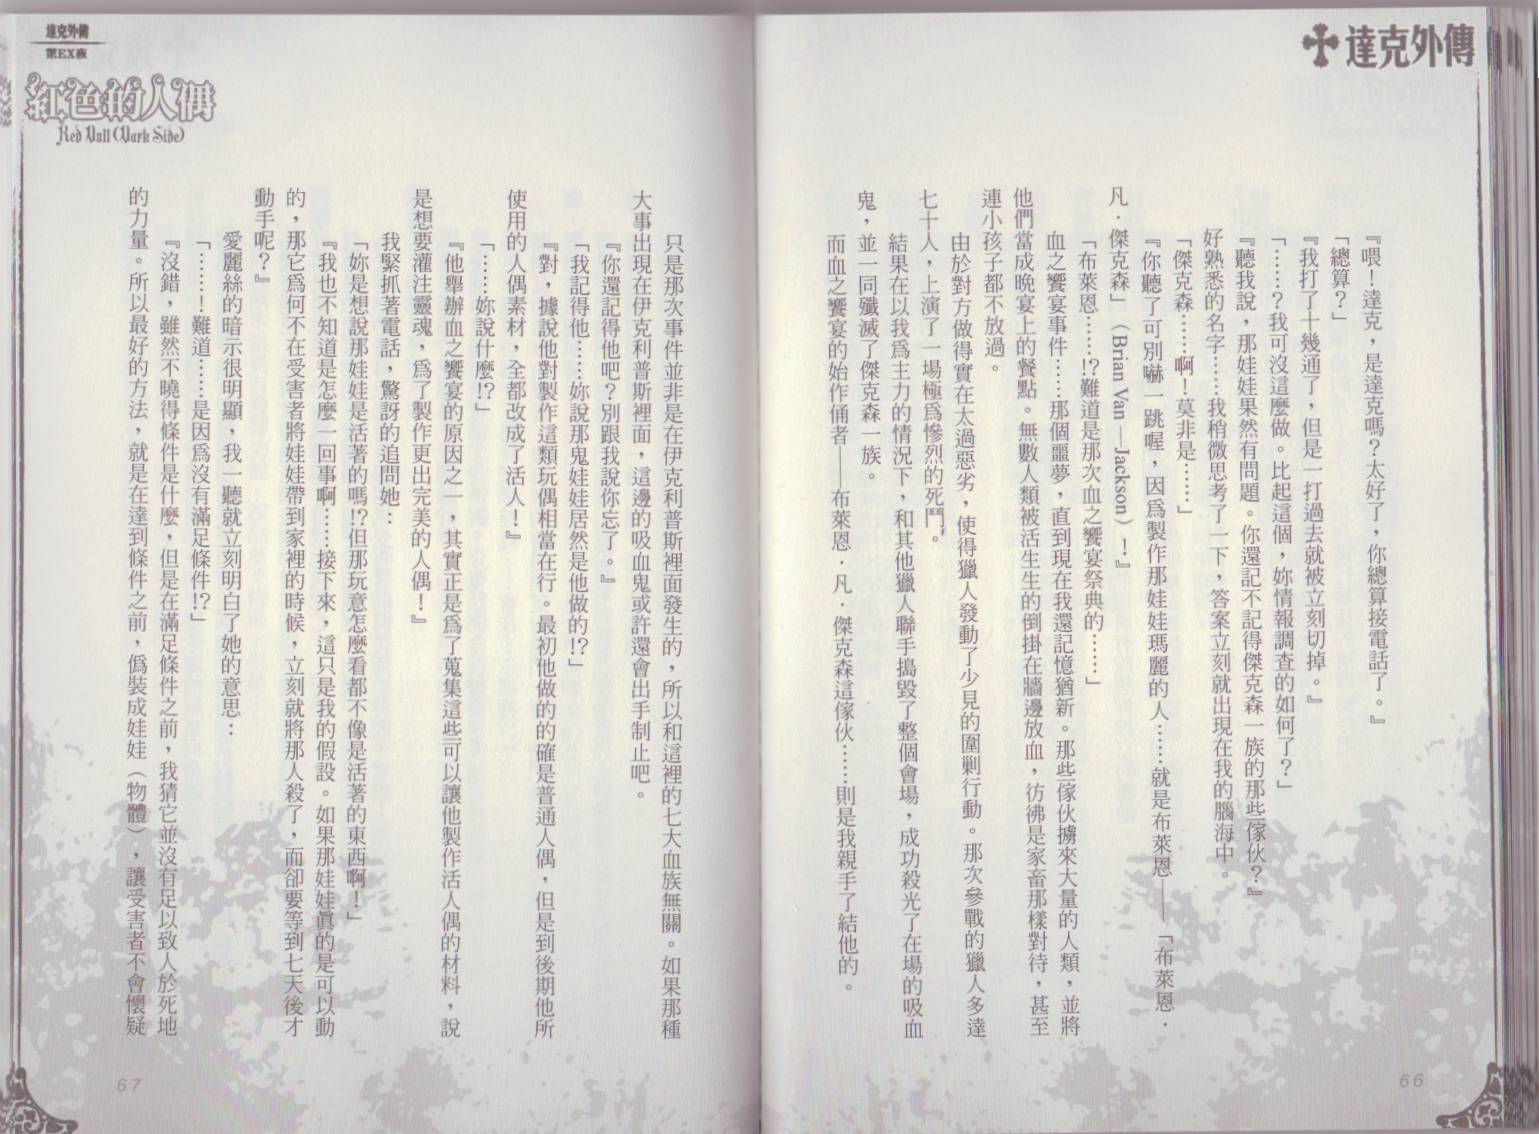 達克外傳
『喂！達克，是達克嗎？太好了，你總算接電話了。』
「總算？」
『我打了十幾通了，但是一打過去就被立刻切掉。』
「……？我可沒這麼做。比起這個，妳情報調查的如何了？」
『聽我說，那娃娃果然有問題。你還記不記得傑克森一族的那些傢伙？』
好熟悉的名字……我稍微思考了一下，答案立刻就出現在我的腦海中。
「傑克森……啊！莫非是……」
『你聽了可別嚇一跳喔，因為製作那娃娃瑪麗的人……就是布萊恩——「布萊恩．
凡．傑克森」（Brian Van —Jackson）！』
「布萊恩……!?難道是那次血之饗宴祭典的……」
血之饗宴事件……那個噩夢，直到現在我還記憶猶新。那些傢伙擄來大量的人類，並將
他們當成晚宴上的餐點。無數人類被活生生的倒掛在牆邊放血，彷彿是家畜那樣對待，甚至
連小孩子都不放過。
由於對方做得實在太過惡劣，使得獵人發動了少見的圍剿行動。那次參戰的獵人多達
七十人，上演了一場極為慘烈的死鬥。
結果在以我為主力的情況下，和其他獵人聯手搗毀了整個會場，成功殺光了在場的吸血
鬼，並一同殲滅了傑克森一族。
而血之饗宴的始作俑者——布萊恩．凡．傑克森這傢伙……則是我親手了結他的。
66
達克外傳
第EX夜
紅色的人偶
Red Dall (Dark Side)
只是那次事件並非是在伊克利普斯裡面發生的，所以和這裡的七大血族無關。如果那種
大事出現在伊克利普斯裡面，這邊的吸血鬼或許還會出手制止吧。
『你還記得他吧？別跟我說你忘了。』
「我記得他……妳說那鬼娃娃居然是他做的!?」
『對，據說他對製作這類玩偶相當在行。最初他做的的確是普通人偶，但是到後期他所
使用的人偶素材，全都改成了活人！』
「……妳說什麼!?」
『他舉辦血之饗宴的原因之一，其實正是為了蒐集這些可以讓他製作活人偶的材料，說
是想要灌注靈魂，為了製作更出完美的人偶！』
我緊抓著電話，驚訝的追問她：
「妳是想說那娃娃是活著的嗎!?但那玩意怎麼看都不像是活著的東西啊！」
『我也不知道是怎麼一回事啊……接下來，這只是我的假設。如果那娃娃真的是可以動
的，那它為何不在受害者將娃娃帶到家裡的時候，立刻就將那人殺了，而卻要等到七天後才
動手呢？』
愛麗絲的暗示很明顯，我一聽就立刻明白了她的意思：
「……！難道……是因為沒有滿足條件!?」
『沒錯，雖然不曉得條件是什麼，但是在滿足條件之前，我猜它並沒有足以致人於死地
的力量。所以最好的方法，就是在達到條件之前，偽裝成娃娃（物體），讓受害者不會懷疑
67